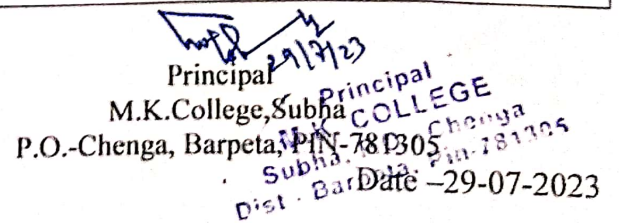 29/7/23
Principal
M.K.College,Subha
P.O.-Chenga, Barpeta, PIN-781305
Date –29-07-2023
Principal
M.K. COLLEGE
Subha, Chenga
Dist - Barpeta, Pin-781305